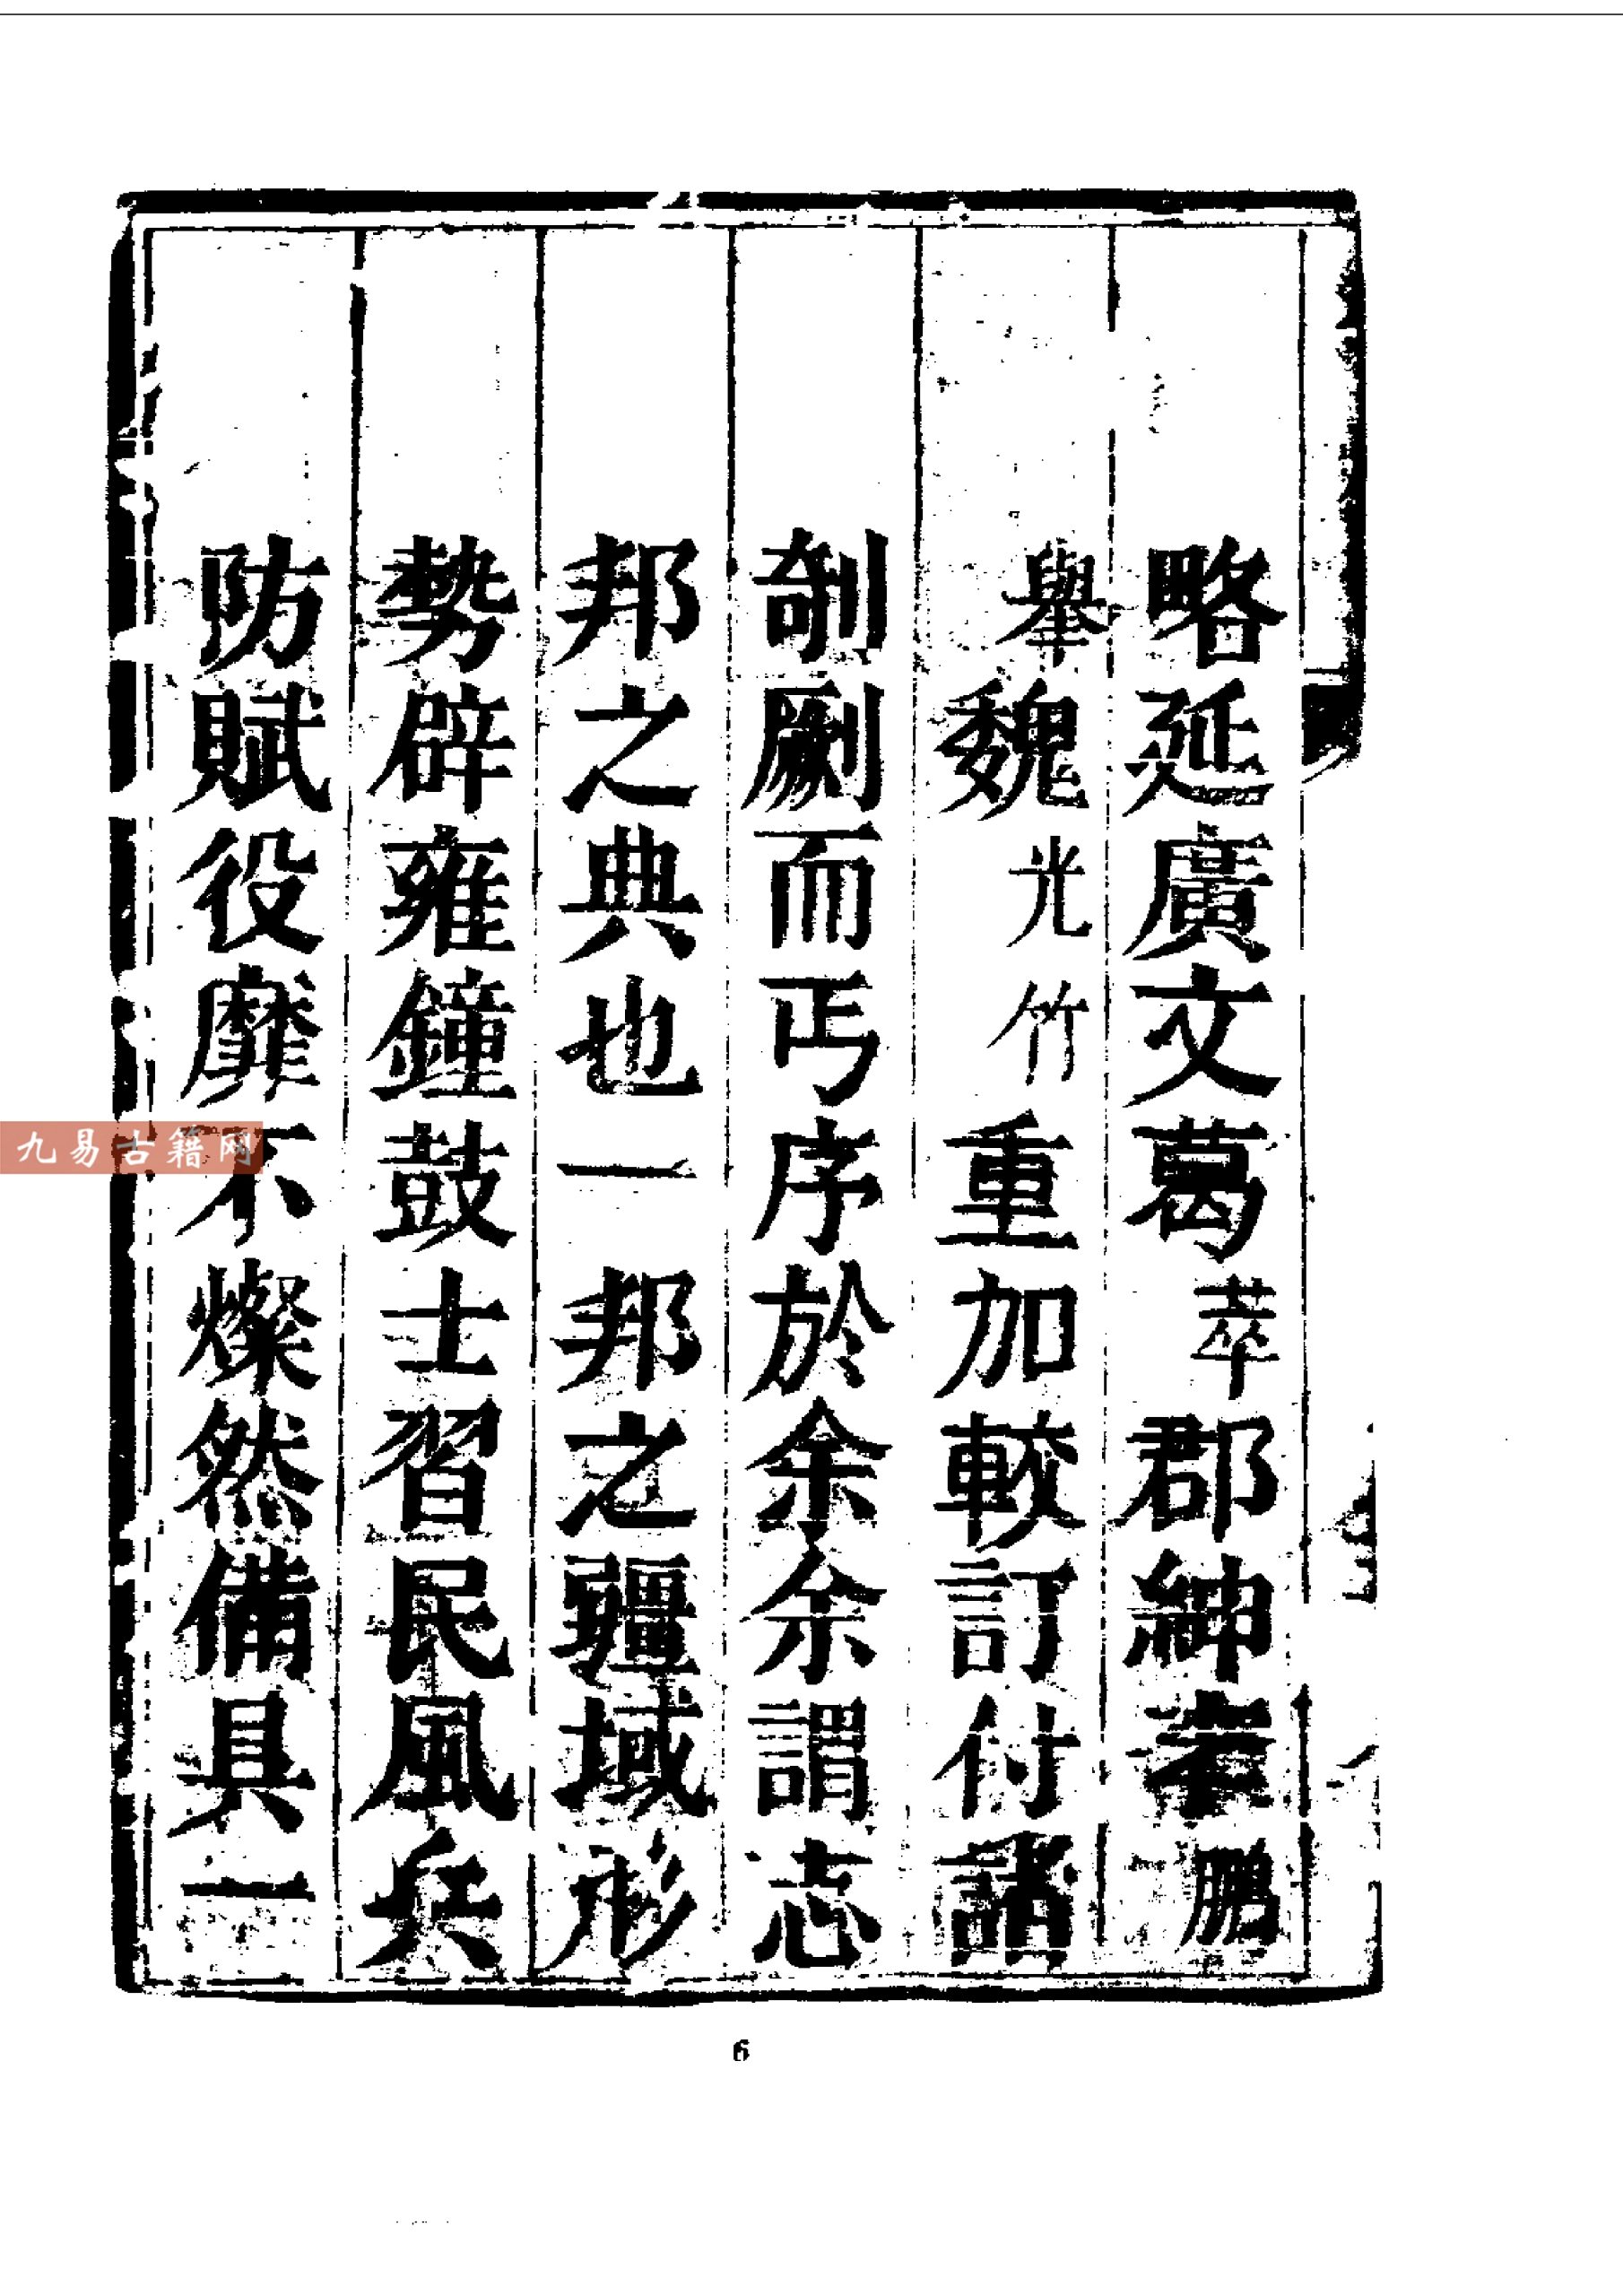 略延廣文葛萃郡紳李鵬
舉魏光竹重加較訂付諸
剞劂而丐序於余余謂志
邦之典也一邦之疆域形
勢辟雍鐘鼓士習民風兵
防賦役靡不燦然備具一
九易古籍网
6